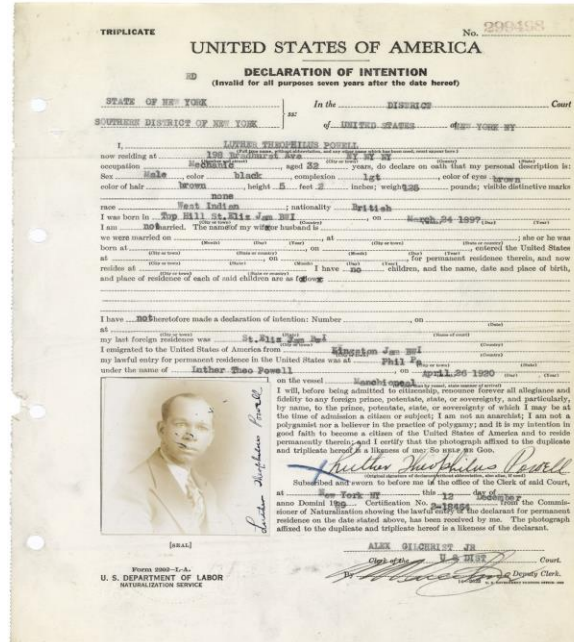 TRIPLICATE
No. 299498
UNITED STATES OF AMERICA
ND
DECLARATION OF INTENTION
(Invalid for all purposes seven years after the date hereof)
STATE OF NEW YORK
In the DISTRICT Court
SOUTHERN DISTRICT OF NEW YORK
ss:
of UNITED STATES at NEW YORK NY
I, LUTHER THEOPHILUS POWELL
now residing at 198 Bradhurst Ave NY NY NY
occupation Mechanic, aged 32 years, do declare on oath that my personal description is:
Sex Male, color black, complexion lgt, color of eyes brown
color of hair brown, height 5 feet 2 inches; weight 125 pounds; visible distinctive marks
none
race West Indian; nationality British
I was born in Top Hill St.Eliz Jam BWI, on March 24 1897
I am not married. The name of my wife or husband is
we were married on, at; she or he was
born at, on, entered the United States
at, on, for permanent residence therein, and now
resides at. I have no children, and the name, date and place of birth,
and place of residence of each of said children are as follows:
I have not heretofore made a declaration of intention: Number, on
at
my last foreign residence was St.Eliz Jam BWI
I emigrated to the United States of America from Kingston Jam BWI
my lawful entry for permanent residence in the United States was at Phil Pa
under the name of Luther Theo Powell, on April 26 1920
on the vessel Manchioneal
I will, before being admitted to citizenship, renounce forever all allegiance and
fidelity to any foreign prince, potentate, state, or sovereignty, and particularly,
by name, to the prince, potentate, state, or sovereignty of which I may be at
the time of admission a citizen or subject; I am not an anarchist; I am not a
polygamist nor a believer in the practice of polygamy; and it is my intention in
good faith to become a citizen of the United States of America and to reside
permanently therein; and I certify that the photograph affixed to the duplicate
and triplicate hereof is a likeness of me: So HELP ME GOD.
Luther Theophilus Powell
Luther Theophilus Powell
Subscribed and sworn to before me in the office of the Clerk of said Court,
at New York NY this 12 day of December
anno Domini 1929 Certification No. from the Commis-
sioner of Naturalization showing the lawful entry of the declarant for permanent
residence on the date stated above, has been received by me. The photograph
affixed to the duplicate and triplicate hereof is a likeness of the declarant.
ALEX GILCHRIST JR
[SEAL]
Clerk of the U S DIST Court.
By Deputy Clerk.
Form 2202-L-A.
U. S. DEPARTMENT OF LABOR
NATURALIZATION SERVICE